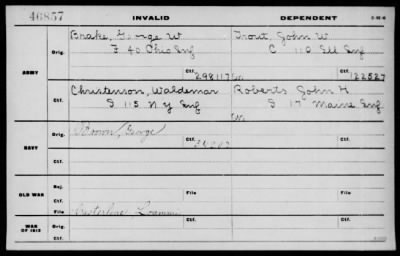 46857 INVALID DEPENDENT
Brake, George W Trout, John W
Orig. F 40 Ohio Inf C 110 Ill Inf
ARMY Ctf. 298117 Ctf. 122527
Christenson, Waldemar Roberts John H
Ctf. S 115 N Y Inf S 17 Maine Inf
Orig. Brown, George
NAVY Ctf.
Ctf.
OLD WAR Rej. Ctf.
File File
WAR OF 1812 Casterline, Loammi
Orig. Ctf.
Ctf.